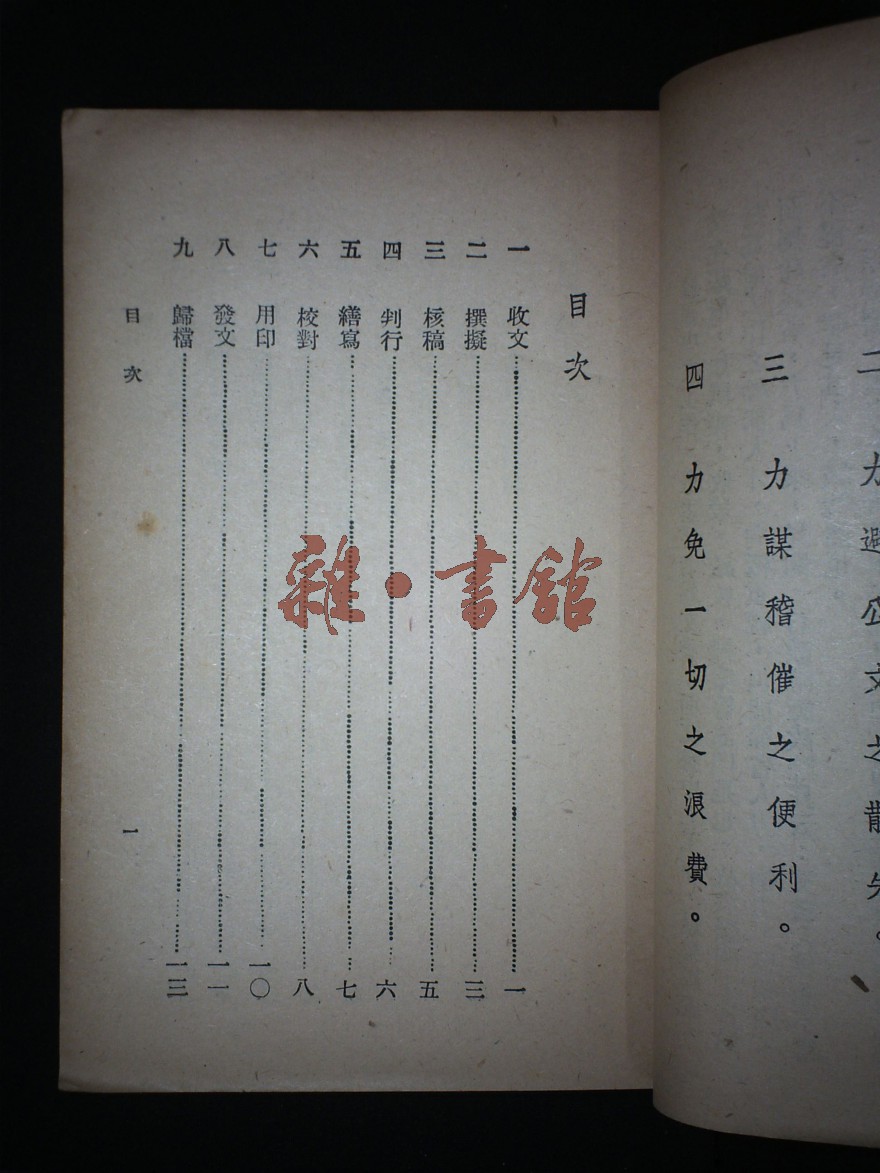 二 力避公文之散失。
三 力謀稽催之便利。
四 力免一切之浪費。
目次
一 收文 一
二 撰擬 三
三 核稿 五
四 判行 六
五 繕寫 七
六 校對 八
七 用印 一〇
八 發文 一一
九 歸檔 一三
目次 一
雜·書館